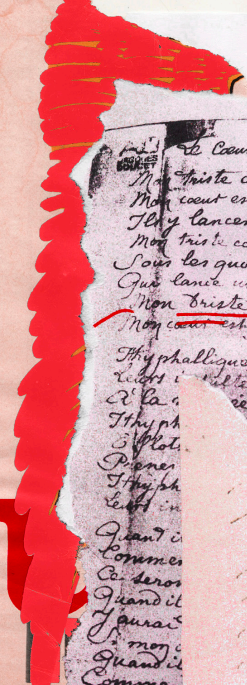 Le Cœur
Mon triste
Mon cœur es
Ils y lancen
Mon triste c
Sous les quo
Qui lance
Mon Triste
Mon cœur est
Ithyphallique
Leurs
A la
Ithyph
O flots
Prenez
Ithyph
Leurs in
Quand i
Commen
Ce seron
Quand il
J'aurai
mon
Quand il
Comme